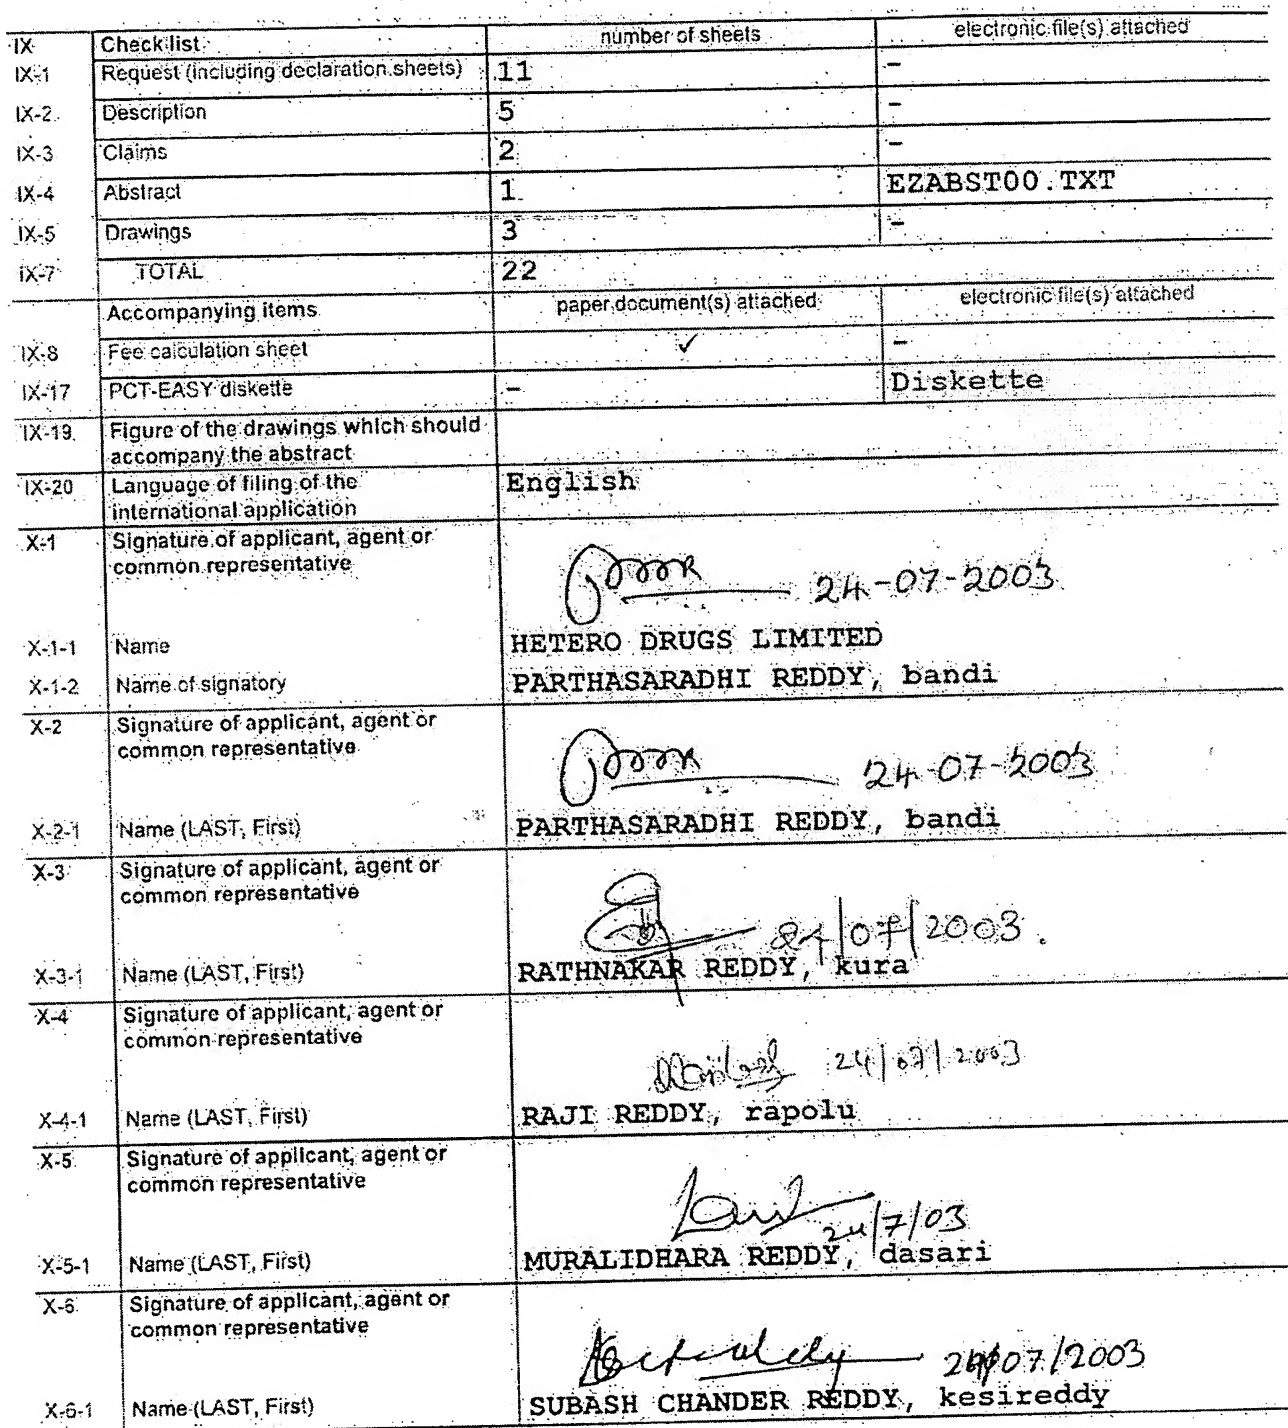 IX Check list number of sheets electronic file(s) attached
IX-1 Request (including declaration sheets) 11 -
IX-2 Description 5 -
IX-3 Claims 2 -
IX-4 Abstract 1 EZABST00.TXT
IX-5 Drawings 3 -
IX-7 TOTAL 22
Accompanying items paper document(s) attached electronic file(s) attached
IX-8 Fee calculation sheet ✓ -
IX-17 PCT-EASY diskette - Diskette
IX-19 Figure of the drawings which should
accompany the abstract
IX-20 Language of filing of the English
international application
X-1 Signature of applicant, agent or
common representative
24-07-2003
X-1-1 Name HETERO DRUGS LIMITED
X-1-2 Name of signatory PARTHASARADHI REDDY, bandi
X-2 Signature of applicant, agent or
common representative
24-07-2003
X-2-1 Name (LAST, First) PARTHASARADHI REDDY, bandi
X-3 Signature of applicant, agent or
common representative
24/07/2003.
X-3-1 Name (LAST, First) RATHNAKAR REDDY, kura
X-4 Signature of applicant, agent or
common representative
24/07/2003
X-4-1 Name (LAST, First) RAJI REDDY, rapolu
X-5 Signature of applicant, agent or
common representative
24/7/03
X-5-1 Name (LAST, First) MURALIDHARA REDDY, dasari
X-6 Signature of applicant, agent or
common representative
24/07/2003
X-6-1 Name (LAST, First) SUBASH CHANDER REDDY, kesireddy